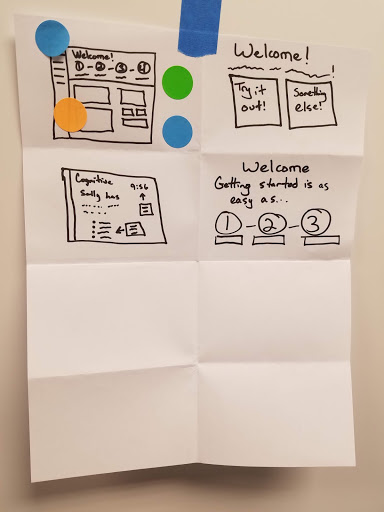 Welcome!
1 - 2 - 3 - 4
Welcome!
Try it
out!
Something
else!
Cognitive
9:56
Sally has
Welcome
Getting started is as
easy as...
1 - 2 - 3